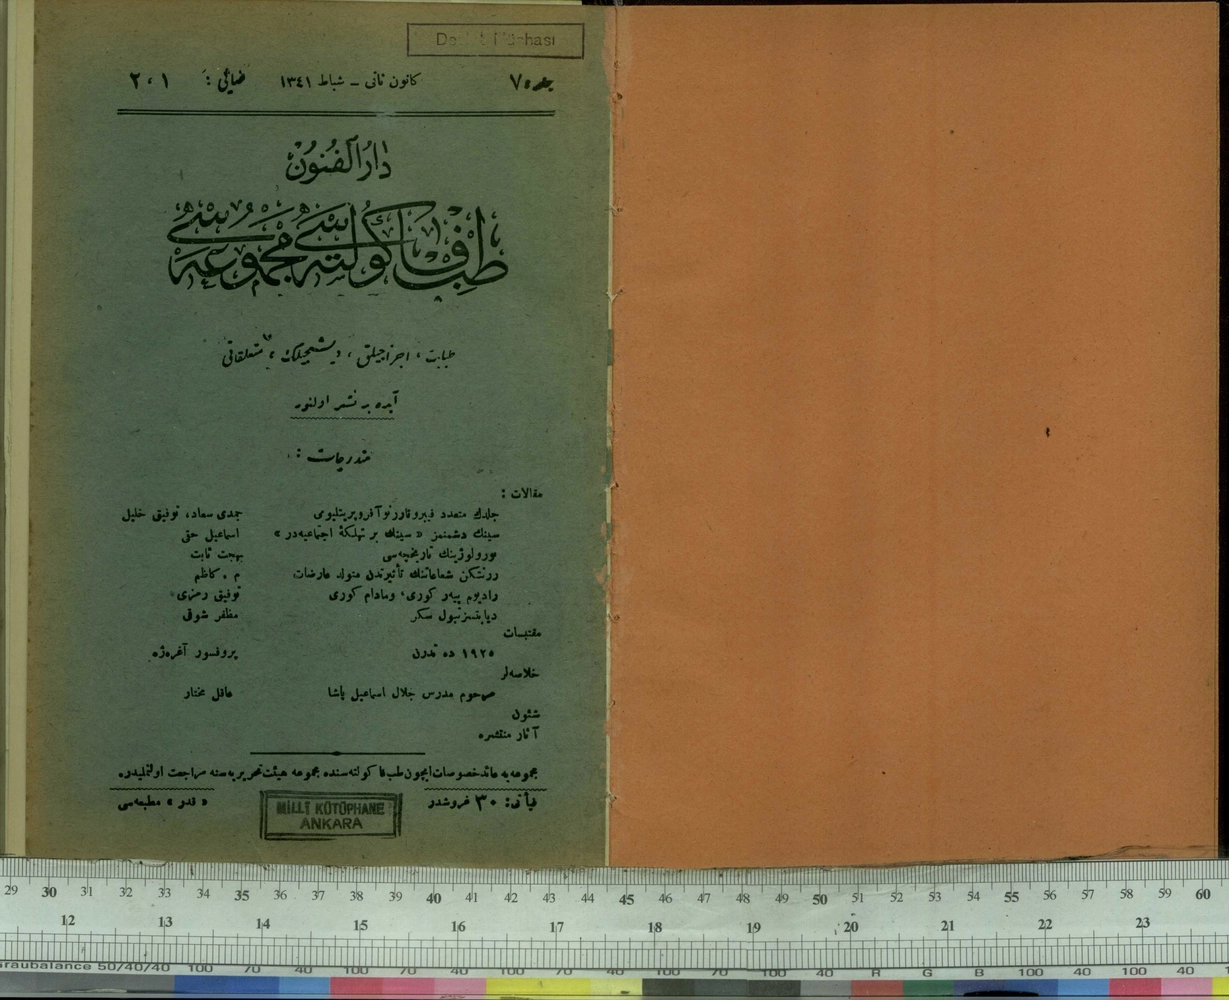 جلد: ٧ كانون ثانی ــ شباط ١٣٤١ صایی: ١،٢
دارالفنون
طب فاكولته‌سی مجموعه‌سی
طبابت، اجزاجیلق، دیشجیلك و متعلقاتی
آیده بر نشر اولنور
مندرجات:
مقالات:
جلدك متعدد فیبروقارزنوآفروپریتلیومی حمدی سعاد، توفیق خلیل
سینك دشمنمز «سینك بر تهلكهٔ اجتماعیه‌در» اسماعیل حق
نورولوژینك تاریخچه‌سی بهجت ثابت
رونتكن شعاعاتنك تأثیرندن متولد عارضات م. كاظم
رادیوم پیه‌ر كوری، ومادام كوری توفیق رمزی
دیابتسز تبول سكر مظفر شوقی
مقتبسات
١٩٢٥ ده تدرن پروفسور آغره‌ژه
خلاصه‌لر
مرحوم مدرس جلال اسماعیل پاشا عاقل مختار
شئون
آثار منتشره
مجموعه‌یه عائد خصوصات ایچون طب فاكولته‌سنده مجموعه هیئت تحریریه‌سنه مراجعت اولنملیدر.
فیأتی: ٣٠ غروشدر «قدر» مطبعه‌سی
MİLLÎ KÜTÜPHANE
ANKARA
29 30 31 32 33 34 35 36 37 38 39 40 41 42 43 44 45 46 47 48 49 50 51 52 53 54 55 56 57 58 59 60
12 13 14 15 16 17 18 19 20 21 22 23
raubalance 50/40/40 100 70 40 100 70 40 100 70 40 100 70 100 40 R G B 100 40 100 40